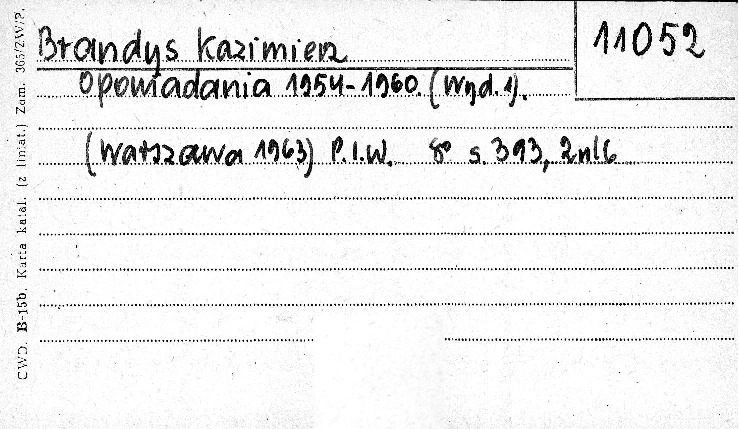 Brandys Kazimierz
11052
Opowiadania 1954-1960. (Wyd. 1).
(Warszawa 1963) P.I.W. 8° s. 393, 2nlb
CWD. B-15b. Karta katal. (z liniat.) Zam. 365/ZW/P.